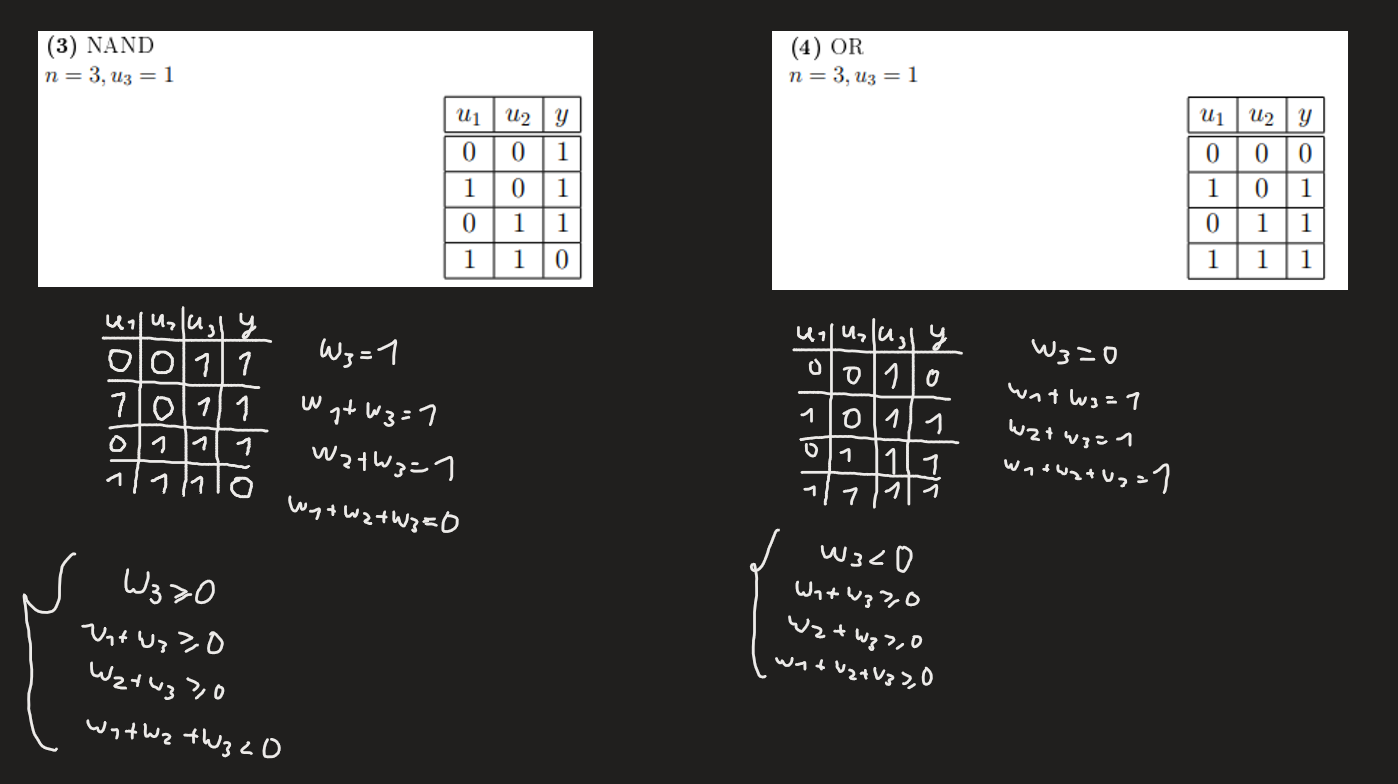 (3) NAND
n = 3, u₃ = 1
u₁ u₂ y
0 0 1
1 0 1
0 1 1
1 1 0
u₁ u₂ u₃ y
0 0 1 1
1 0 1 1
0 1 1 1
1 1 1 0
w₃ = 1
w₁ + w₃ = 1
w₂ + w₃ = 1
w₁ + w₂ + w₃ = 0
w₃ ⩾ 0
w₁ + w₃ ⩾ 0
w₂ + w₃ ⩾ 0
w₁ + w₂ + w₃ < 0
(4) OR
n = 3, u₃ = 1
u₁ u₂ y
0 0 0
1 0 1
0 1 1
1 1 1
u₁ u₂ u₃ y
0 0 1 0
1 0 1 1
0 1 1 1
1 1 1 1
w₃ = 0
w₁ + w₃ = 1
w₂ + w₃ = 1
w₁ + w₂ + w₃ = 1
w₃ < 0
w₁ + w₃ ⩾ 0
w₂ + w₃ ⩾ 0
w₁ + w₂ + w₃ ⩾ 0